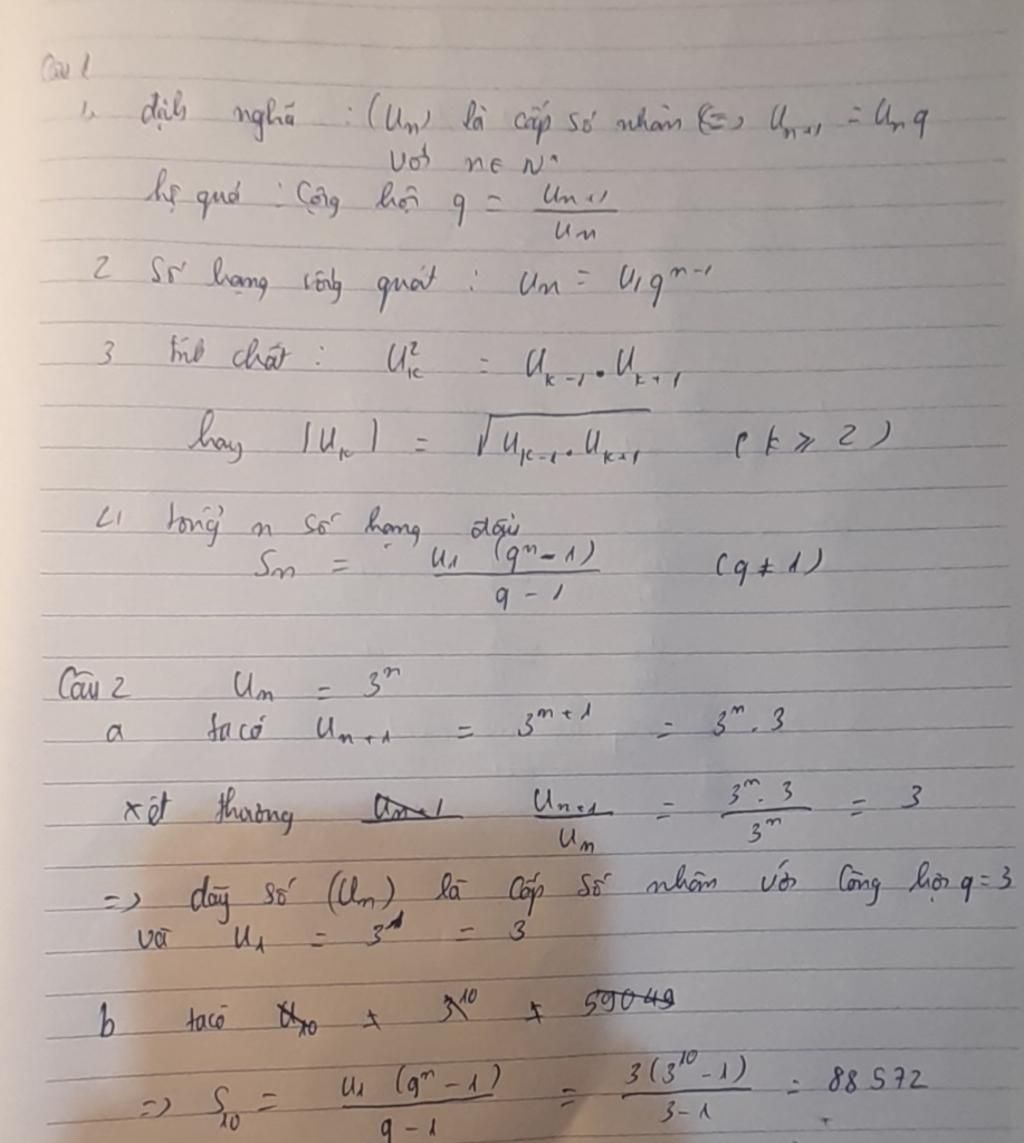 Câu 1
1, định nghã : (Un) là cấp số nhân <=> Un+1 = Un q
với n ∈ N*
hệ quả : Công bội q = Un+1 / Un
2 Số hạng tổng quát : Un = U1 q^n-1
3 tính chất : Uk² = Uk-1 . Uk+1
hay |Uk| = √(Uk-1 . Uk+1) (k ≥ 2)
4 tổng n số hạng đầu
Sn = U1 (q^n - 1) / q - 1 (q ≠ 1)
Câu 2 Un = 3^n
a ta có Un+1 = 3^n+1 = 3^n . 3
xét thương Un+1 Un+1 / Un = 3^n . 3 / 3^n = 3
=> dãy số (Un) là cấp số nhân với công bội q = 3
và U1 = 3^1 = 3
b ta có U10 = 3^10 = 59049
=> S10 = U1 (q^n - 1) / q - 1 = 3(3^10 - 1) / 3 - 1 = 88572